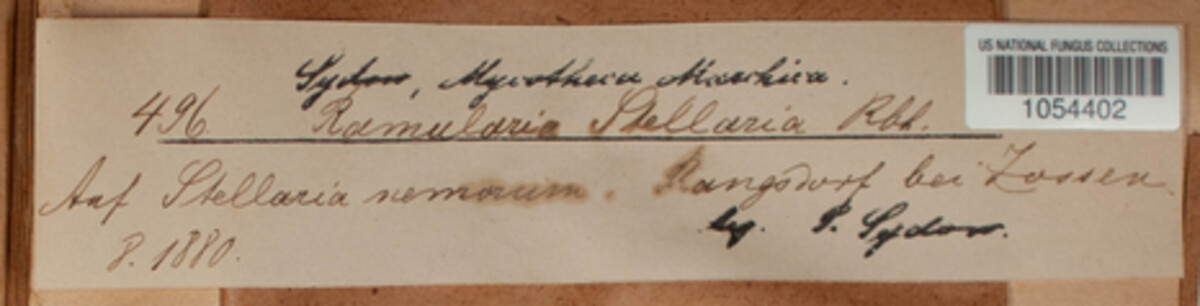 Sydow, Mycotheca Marchica.
US NATIONAL FUNGUS COLLECTIONS
1054402
496. Ramularia Stellaria Rbh.
Auf Stellaria nemorum. Rangsdorf bei Zossen.
8. 1880. leg. P. Sydow.